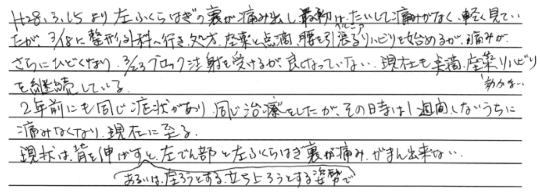 H28.3.15より左ふくらはぎの裏が痛み出し最初は、たいして痛みがなく、軽く見て
たが、3/18に整形外科へ行き、処方、座薬と点滴、腰を引張るリハビリを始めるが、痛みが
さらにひどくなり、3/23ブロック注射を受けるが良くなっていない。現在も 座薬、リハビリ
を継続している。
2年前にも同じ症状があり、同じ治療をしたが、その日時は1週間しないうちに
痛みなくなり、現在に至る。
現状は、背を伸ばすと、左でん部と左ふくらはぎ裏が痛み、がまん出来ない。
あるいは、座ろうとする、立ち上ろうとする姿勢で